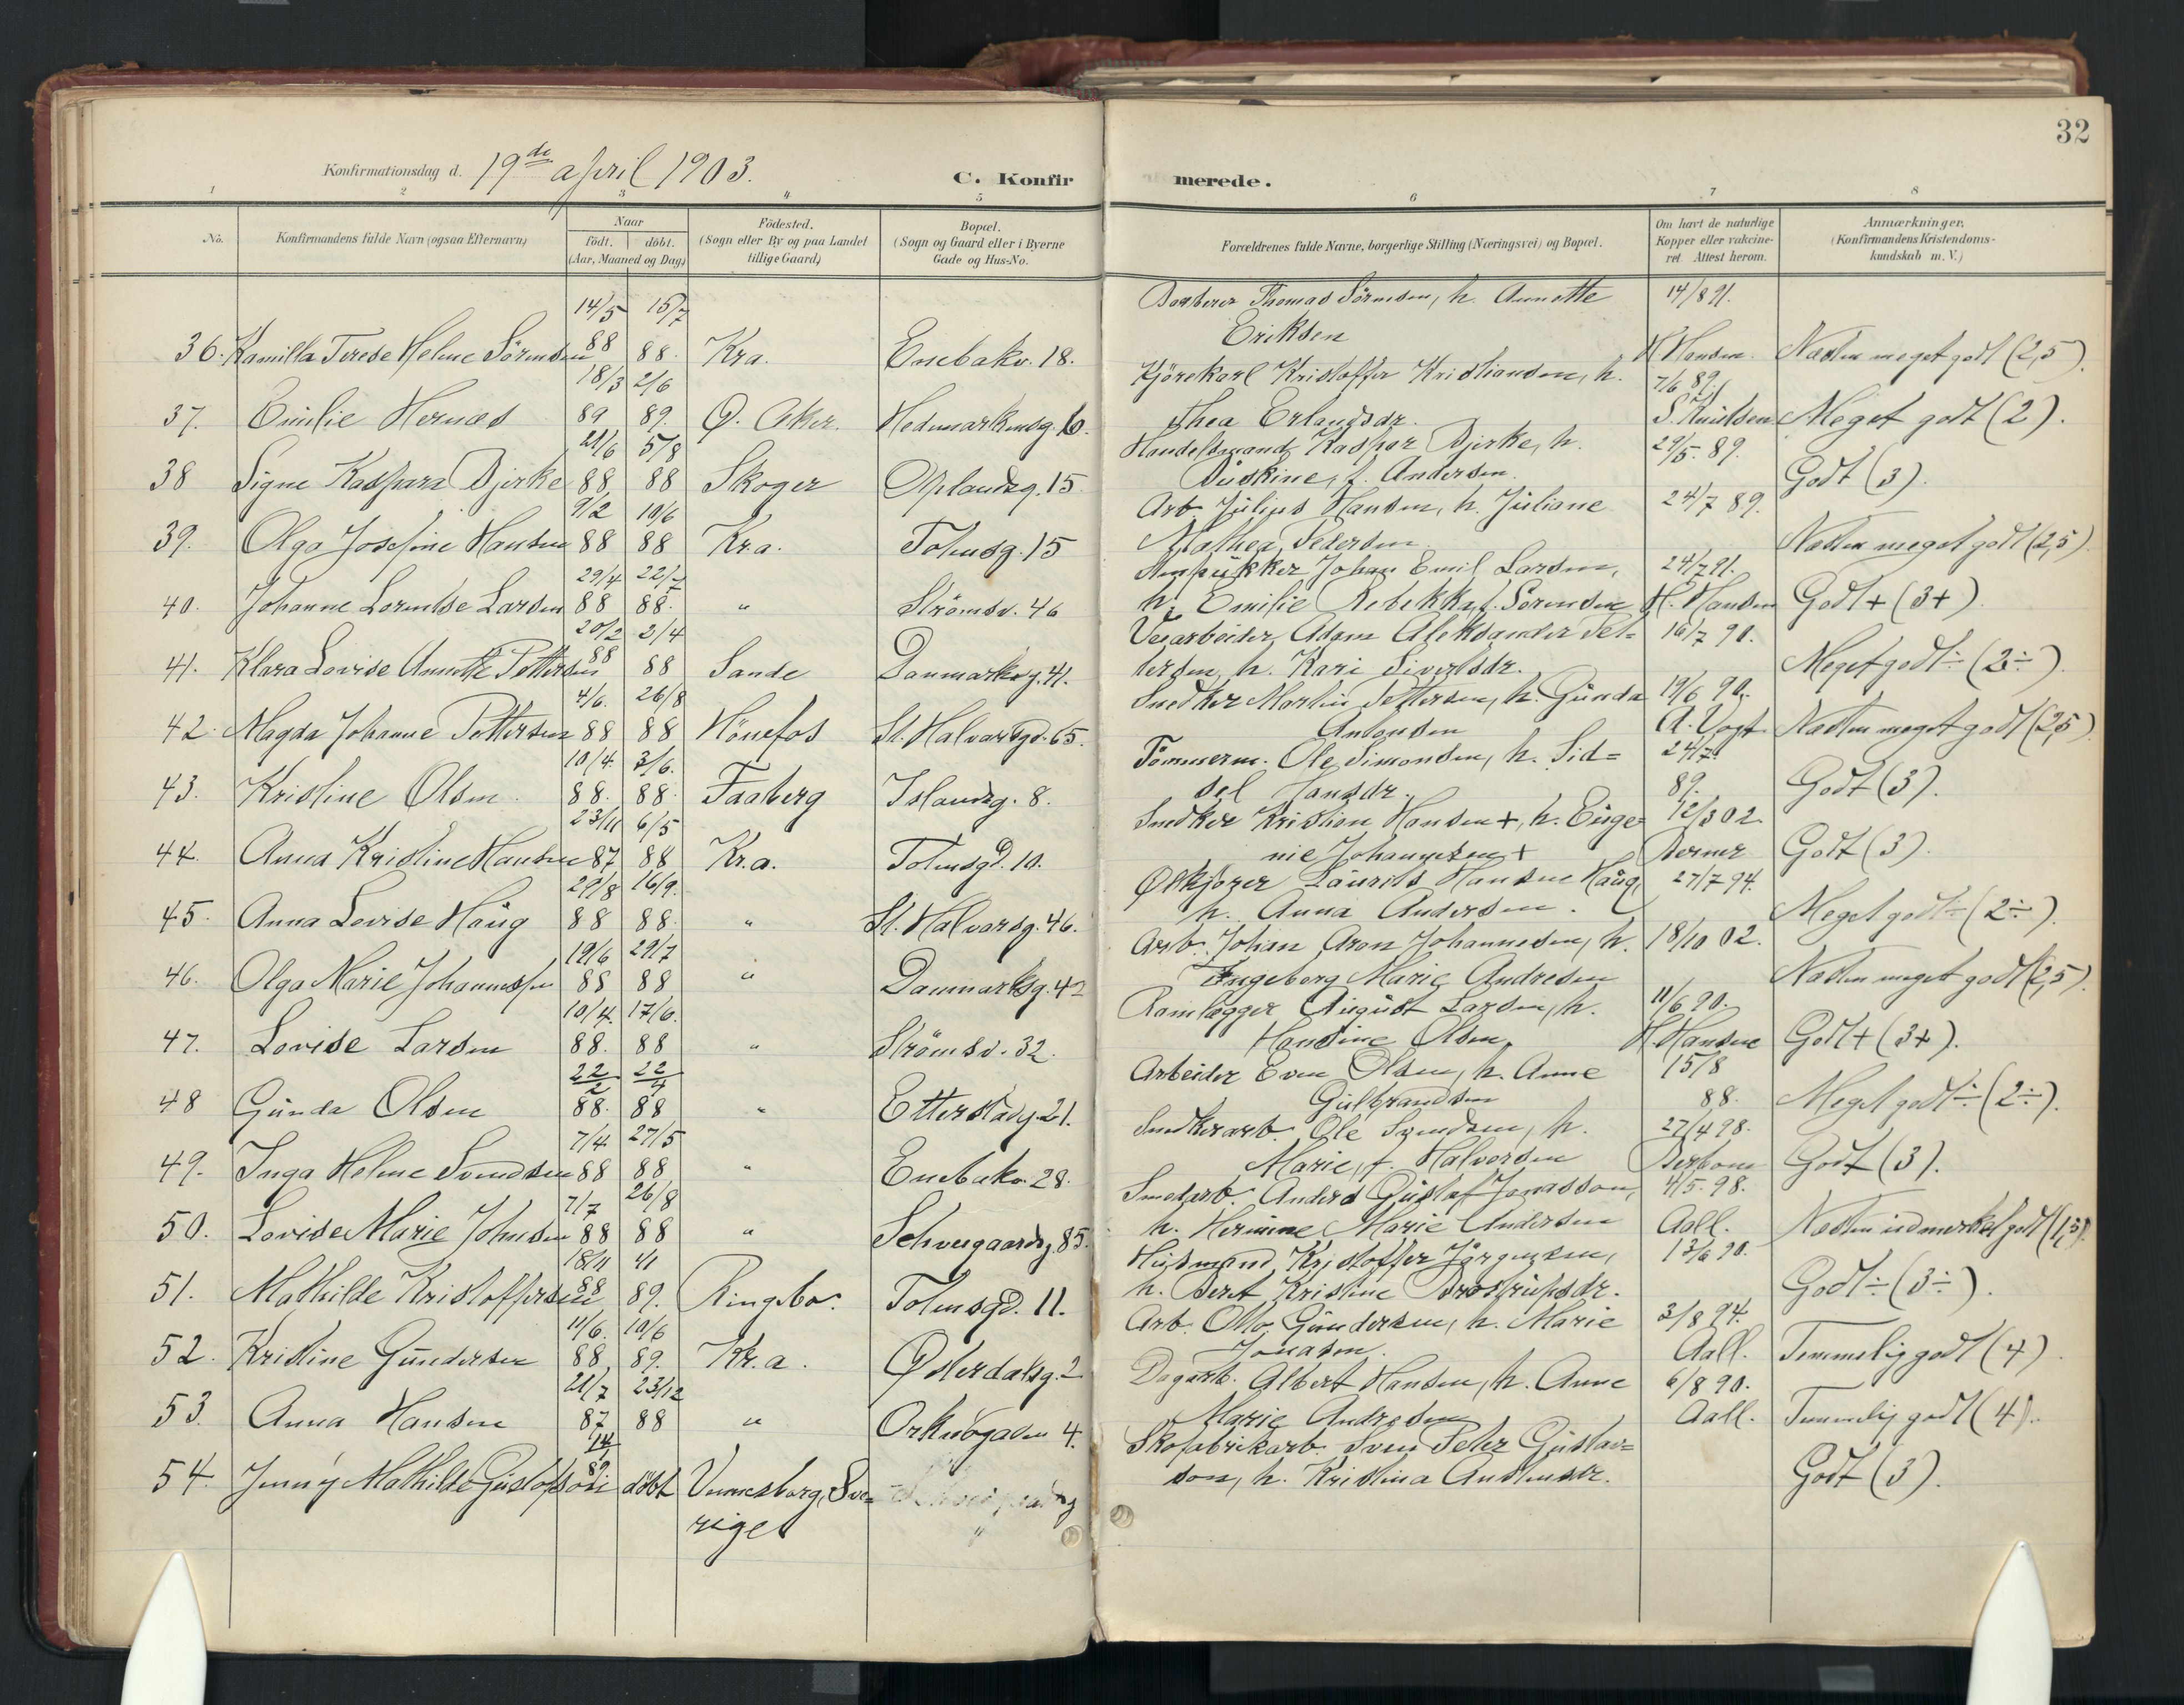 32
Konfirmationsdag d. 19de april 1903.
C. Konfirmerede.
1 2 3 4 5 6 7 8
No.
Konfirmandens fulde Navn (ogsaa Efternavn)
Naar
födt. döbt.
(Aar, Maaned og Dag)
Födested.
(Sogn eller By og paa Landet
tillige Gaard)
Bopæl.
(Sogn og Gaard eller i Byerne
Gade og Hus-No.
Forældrenes fulde Navne, borgerlige Stilling (Næringsvei) og Bopæl.
Om havt de naturlige
Kopper eller vakcine-
ret. Attest herom.
Anmærkninger.
(Konfirmandens Kristendoms-
kundskab m. V.)
14/5 15/7 Thomas Sörensen, h. Annette 14/8 91.
Eriksen
36. Kamilla Terese Helene Sörensen 88 88. Kra. Enebakv. 18. H Hansen. Næsten meget godt (2,5).
18/3 2/6 Kjörekarl Kristoffer Kristiansen, h. 7/6 89.
37. Emilie Hernæs 89 89. Ø. Aker. Hedmarkensg. 10. Thea Erlandsdr. S. Knudsen Meget godt (2).
21/6 5/8 Handelsmand Kaspar Bjerke, h. 29/5. 89.
38 Signe Kaspara Bjerke 88 88 Skoger Oplandsg. 15 f. Andersen. Godt (3).
9/2 10/6 Arb. Julius Hansen, h. Juliane 24/7 89.
39. Olga Josefine Hansen 88 88 Kr.a. Tolensg. 15 Mathea Pedersen Næsten meget godt (2,5).
29/4 22/7 Johan Emil Larsen, 24/7 91.
40. Johanne Lorentse Larsen 88 88. " Strömsv. 46 h. Emilie Rebekka f. Sörensen H. Hansen Godt + (3+)
20/2 2/4 Veiarbeider Adam Aleksander Pet= 16/7 90.
41. Klara Lovise Annette Pettersen 88 88 Sande Danmarksg. 41. tersen, h. Kari Sivertsdr. Meget godt ÷ (2÷)
4/6. 26/8 Snedker Martin Pettersen, h. Gunda 19/6 90.
42. Magda Johanne Pettersen 88 88 Hönefos St. Halvarsgd. 65. Antonsen A. Vogt Næsten meget godt (2,5)
10/4. 3/6. Tömmerm. Ole Simonsen, h. Sid= 24/7.
43. Kristine Olsen. 88. 88. Faaberg Islandsg. 8. sel Hansdr. 89. Godt (3).
23/11 6/5 Snedker Kristian Hansen +, h. Euge 12/3 02.
44. Anna Kristine Hansen 87 88 Kr.a. Tolensgd. 10. nie Johannesen + Berner Godt (3).
29/8 16/9. Ølkjörer Laurits Hansen Haug, 27/7 94.
45. Anna Lovise Haug 88 88. " St. Halvarsg. 46. h. Anna Andersen. Meget godt ÷ (2÷).
19/6 29/7 Arb. Johan Aron Johannesen, h. 18/10 02.
46. Olga Marie Johannessen 88 88 " Danmarksg. 42 Ingeborg Marie Andresen Næsten meget godt (2,5).
10/4. 17/6. August Larsen, h. 11/6 90.
47. Lovise Larsen 88. 88 " Strömsv. 32. Hansine Olsen. H. Hansen Godt + (3+).
22/2 22/4 Arbeider Even Olsen, h. Anne 15/8
48 Gunda Olsen 88. 88 " Etterstadg. 21. Gulbrandsen 88. Meget godt ÷ (2÷).
7/4. 27/5 Snedkerarb. Ole Svendsen, h. 27/4 98.
49. Inga Helene Svendsen 88 88 " Enebakv. 28. Marie, f. Halvorsen Godt (3).
7/7 26/8 Smedarb. Anders Gustaf Jonasson, 4/5. 98.
50. Lovise Marie Johnsen 88 88 " Schweigaardsg. 85. h. Hermine Marie Andersen Aall. Næsten udmerket godt (1,5).
18/11 4/1 Husmand Kristoffer Jörgensen, 13/6 90.
51. Mathilde Kristoffersen 88 89. Ringebo. Tolensgd. 11. h. Beret Kristine Brostrupsdr. Godt ÷ (3÷).
11/6. 10/6 Arb. Otto Gundersen, h. Marie 3/8 94.
52. Kristine Gundersen 88 89. Kr.a. Østerdalsg. 2 Jonasen. Aall. Temmelig godt (4)
21/7 23/12 Dagarb. Albert Hansen, h. Anne 6/8 90.
53. Anna Hansen 87 88 " Orknögaden 4. Marie Andresen Aall. Temmelig godt (4).
Skofabrikarb. Sven Peter Gustav=
54. Jenny Mathilde Gustafson döbt Vennesborg, Sve= son, h. Kristina Godt (3).
riget "